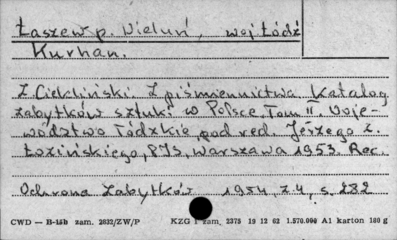 Łaszew p. Wieluń, woj Łódź
Kurhan.
Z. Ciekliński. Z piśmiennictwa Katalog
zabytków sztuki w Polsce. Tom II. Woje-
wództwo Łódzkie, pod red. Jerzego Z.
Łozińskiego, PIS, Warszawa 1953. Rec.
Ochrona Zabytków 1954, z.4, s. 282
CWD — B-15b zam. 2832/ZW/P KZG 1 zam. 2375 19 12 62 1.570.000 A1 karton 180 g